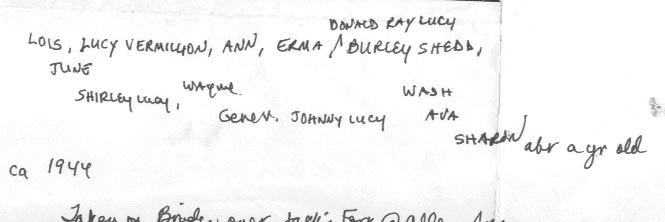 DONALD RAY LUCY
LOIS, LUCY VERMILLION, ANN, ERMA / BURLEY SHEDD,
JUNE
WAYNE WASH
SHIRLEY LUCY, Genev. JOHNNY LUCY AVA
SHARON abt a yr old
ca 1944
Taken on Bridge over